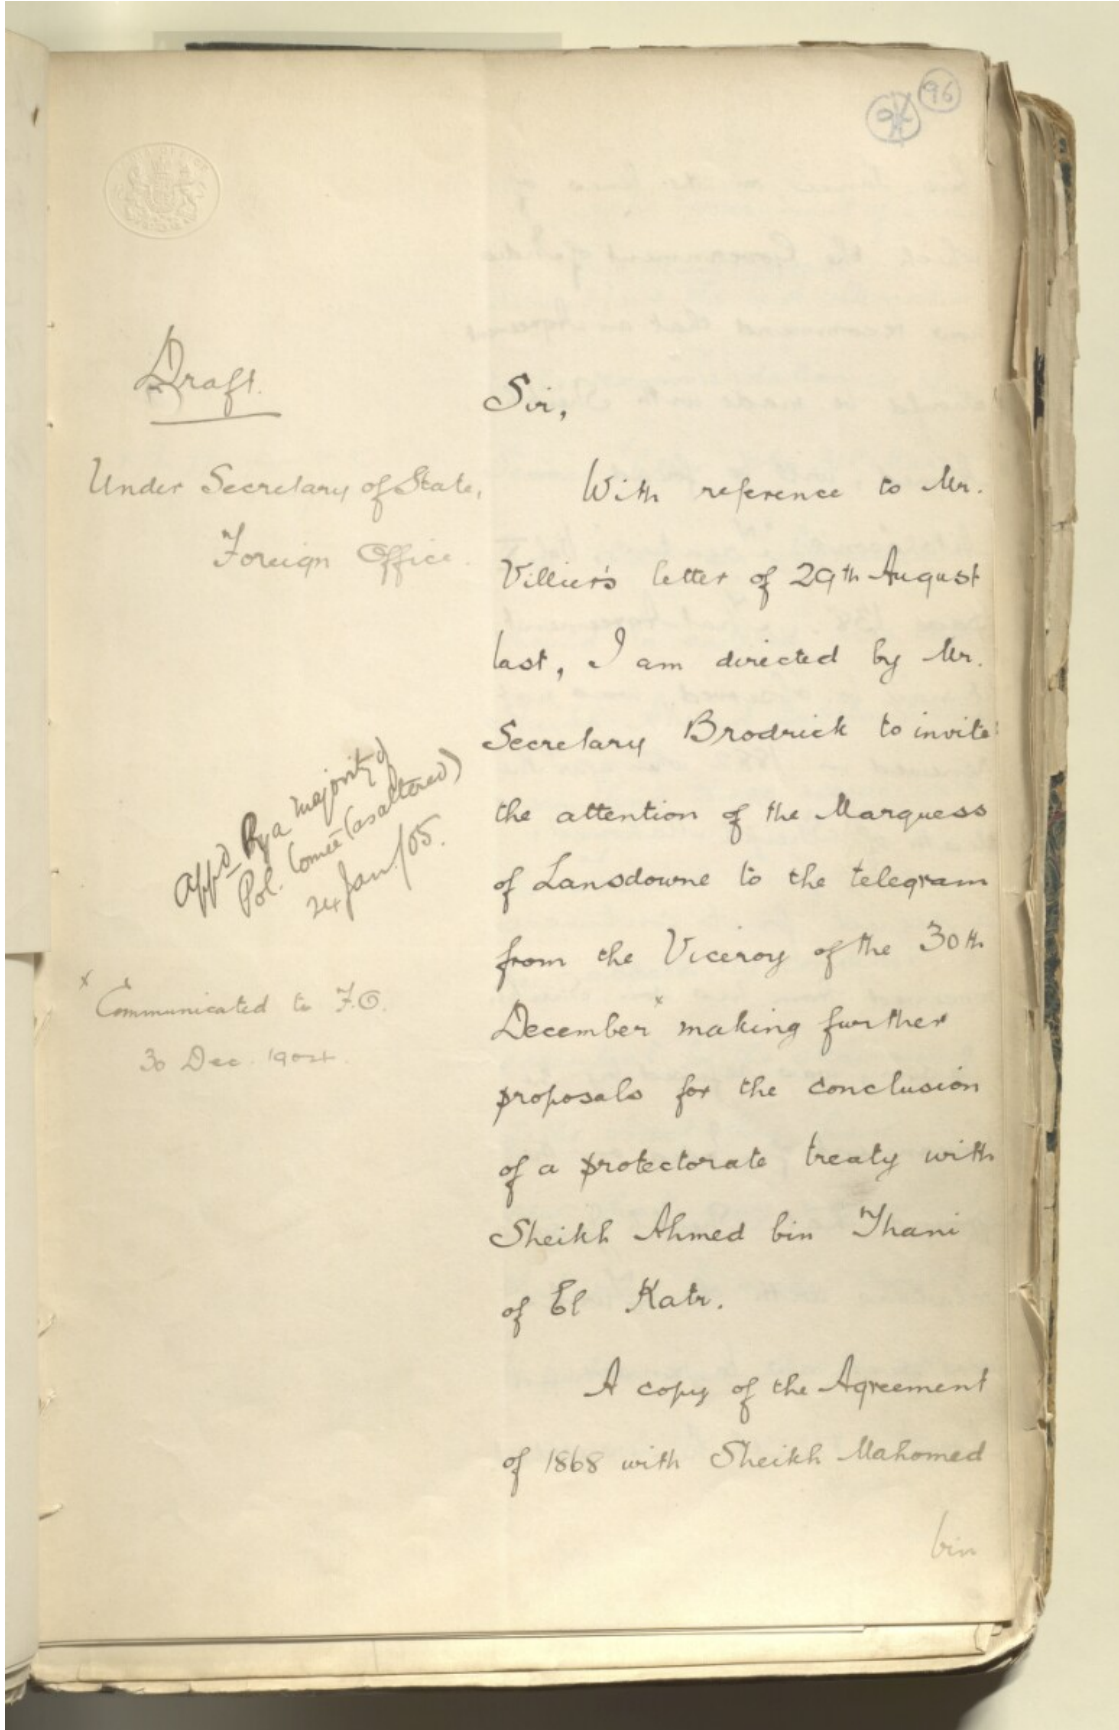 96
Draft.
Under Secretary of State,
Foreign Office.
Appd by a majority of
Pol. Comee (as altered)
24 Jan/05.
x Communicated to F.O.
30 Dec. 1904.
Sir,
With reference to Mr.
Villier's letter of 29th August
last, I am directed by Mr.
Secretary Brodrick to invite
the attention of the Marquess
of Lansdowne to the telegram
from the Viceroy of the 30th
December x making further
proposals for the conclusion
of a protectorate treaty with
Sheikh Ahmed bin Thani
of El Katr.
A copy of the Agreement
of 1868 with Sheikh Mahomed
bin